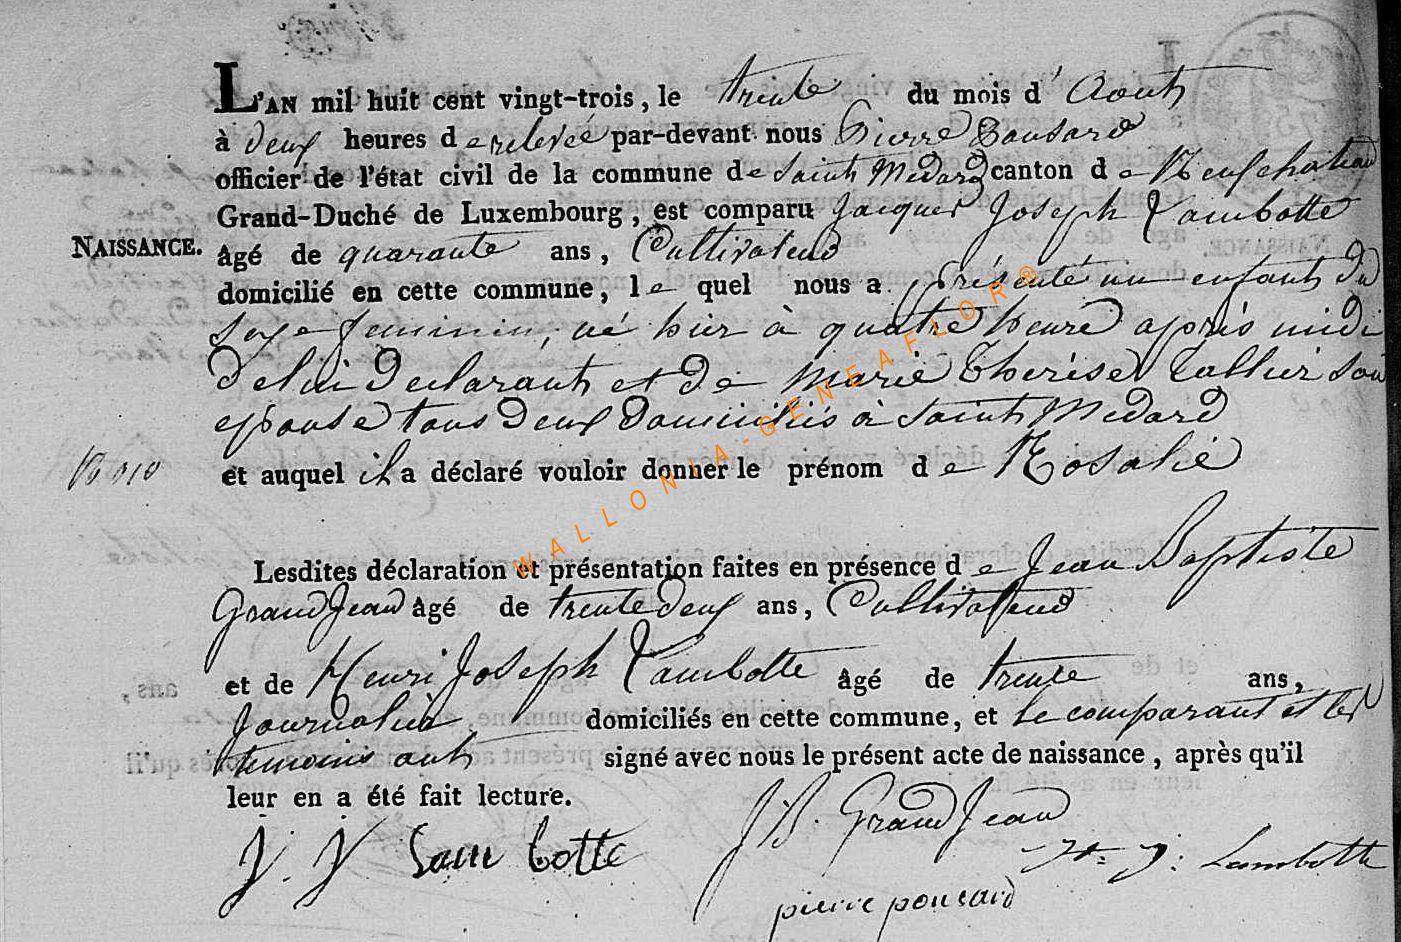 L'AN mil huit cent vingt-trois, le trente du mois d' Aout
à deux heures de relevée par-devant nous Pierre Ponsard
officier de l'état civil de la commune de Saint Medard canton de Neufchateau
Grand-Duché de Luxembourg, est comparu Jacques Joseph Lambotte
NAISSANCE. âgé de quarante ans, Cultivateur
domicilié en cette commune, le quel nous a présenté un enfant du
sexe feminin, né hier à quatre heure après midi
de lui declarant et de Marie Thérèse son
epouse tous deux domiciliés à Saint Medard
et auquel il a déclaré vouloir donner le prénom de Rosalie
Lesdites déclaration et présentation faites en présence de Jean Baptiste
GrandJean âgé de trente deux ans, Cultivateur
et de Henri Joseph Lambotte âgé de trente ans,
Journalier domiciliés en cette commune, et le comparant et les
temoins ont signé avec nous le présent acte de naissance, après qu'il
leur en a été fait lecture.
J. J Lambotte J.B. GrandJean
H. J. Lambotte
pierre ponsard
WALLONIA-GENEAFLOR®